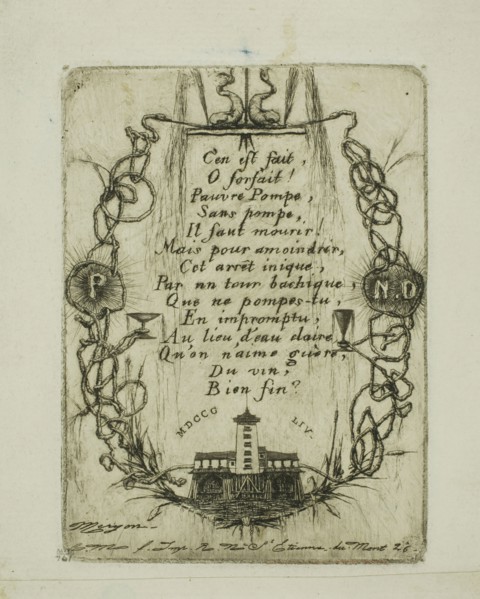 C'en est fait,
O forfait!
Pauvre Pompe,
Sans pompe,
Il faut mourir!
Mais pour amoindrir,
Cet arrêt inique,
Par un tour bachique,
Que ne pompes-tu,
En impromptu,
Au lieu d'eau claire
Qu'on n'aime guère,
Du vin,
Bien fin?
MDCCC LIV.
P
N.D
Meryon
Imp. R. N. St. Etienne du Mont 26